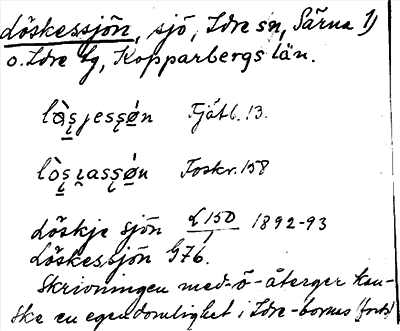 Löskessjön, sjö, Idre sn, Särna 1)
o. Idre tg, Kopparbergs län.
lò̀ʂjessǫ́n Fjätl. 13.
lòʂɩassǫ́n Foskr. 158
Löskje sjön L 150 1892-93
Löskessjön G76.
Skrivningen med -ö- återger kan-
ske en egendomlighet i Idre-bornas (forts)